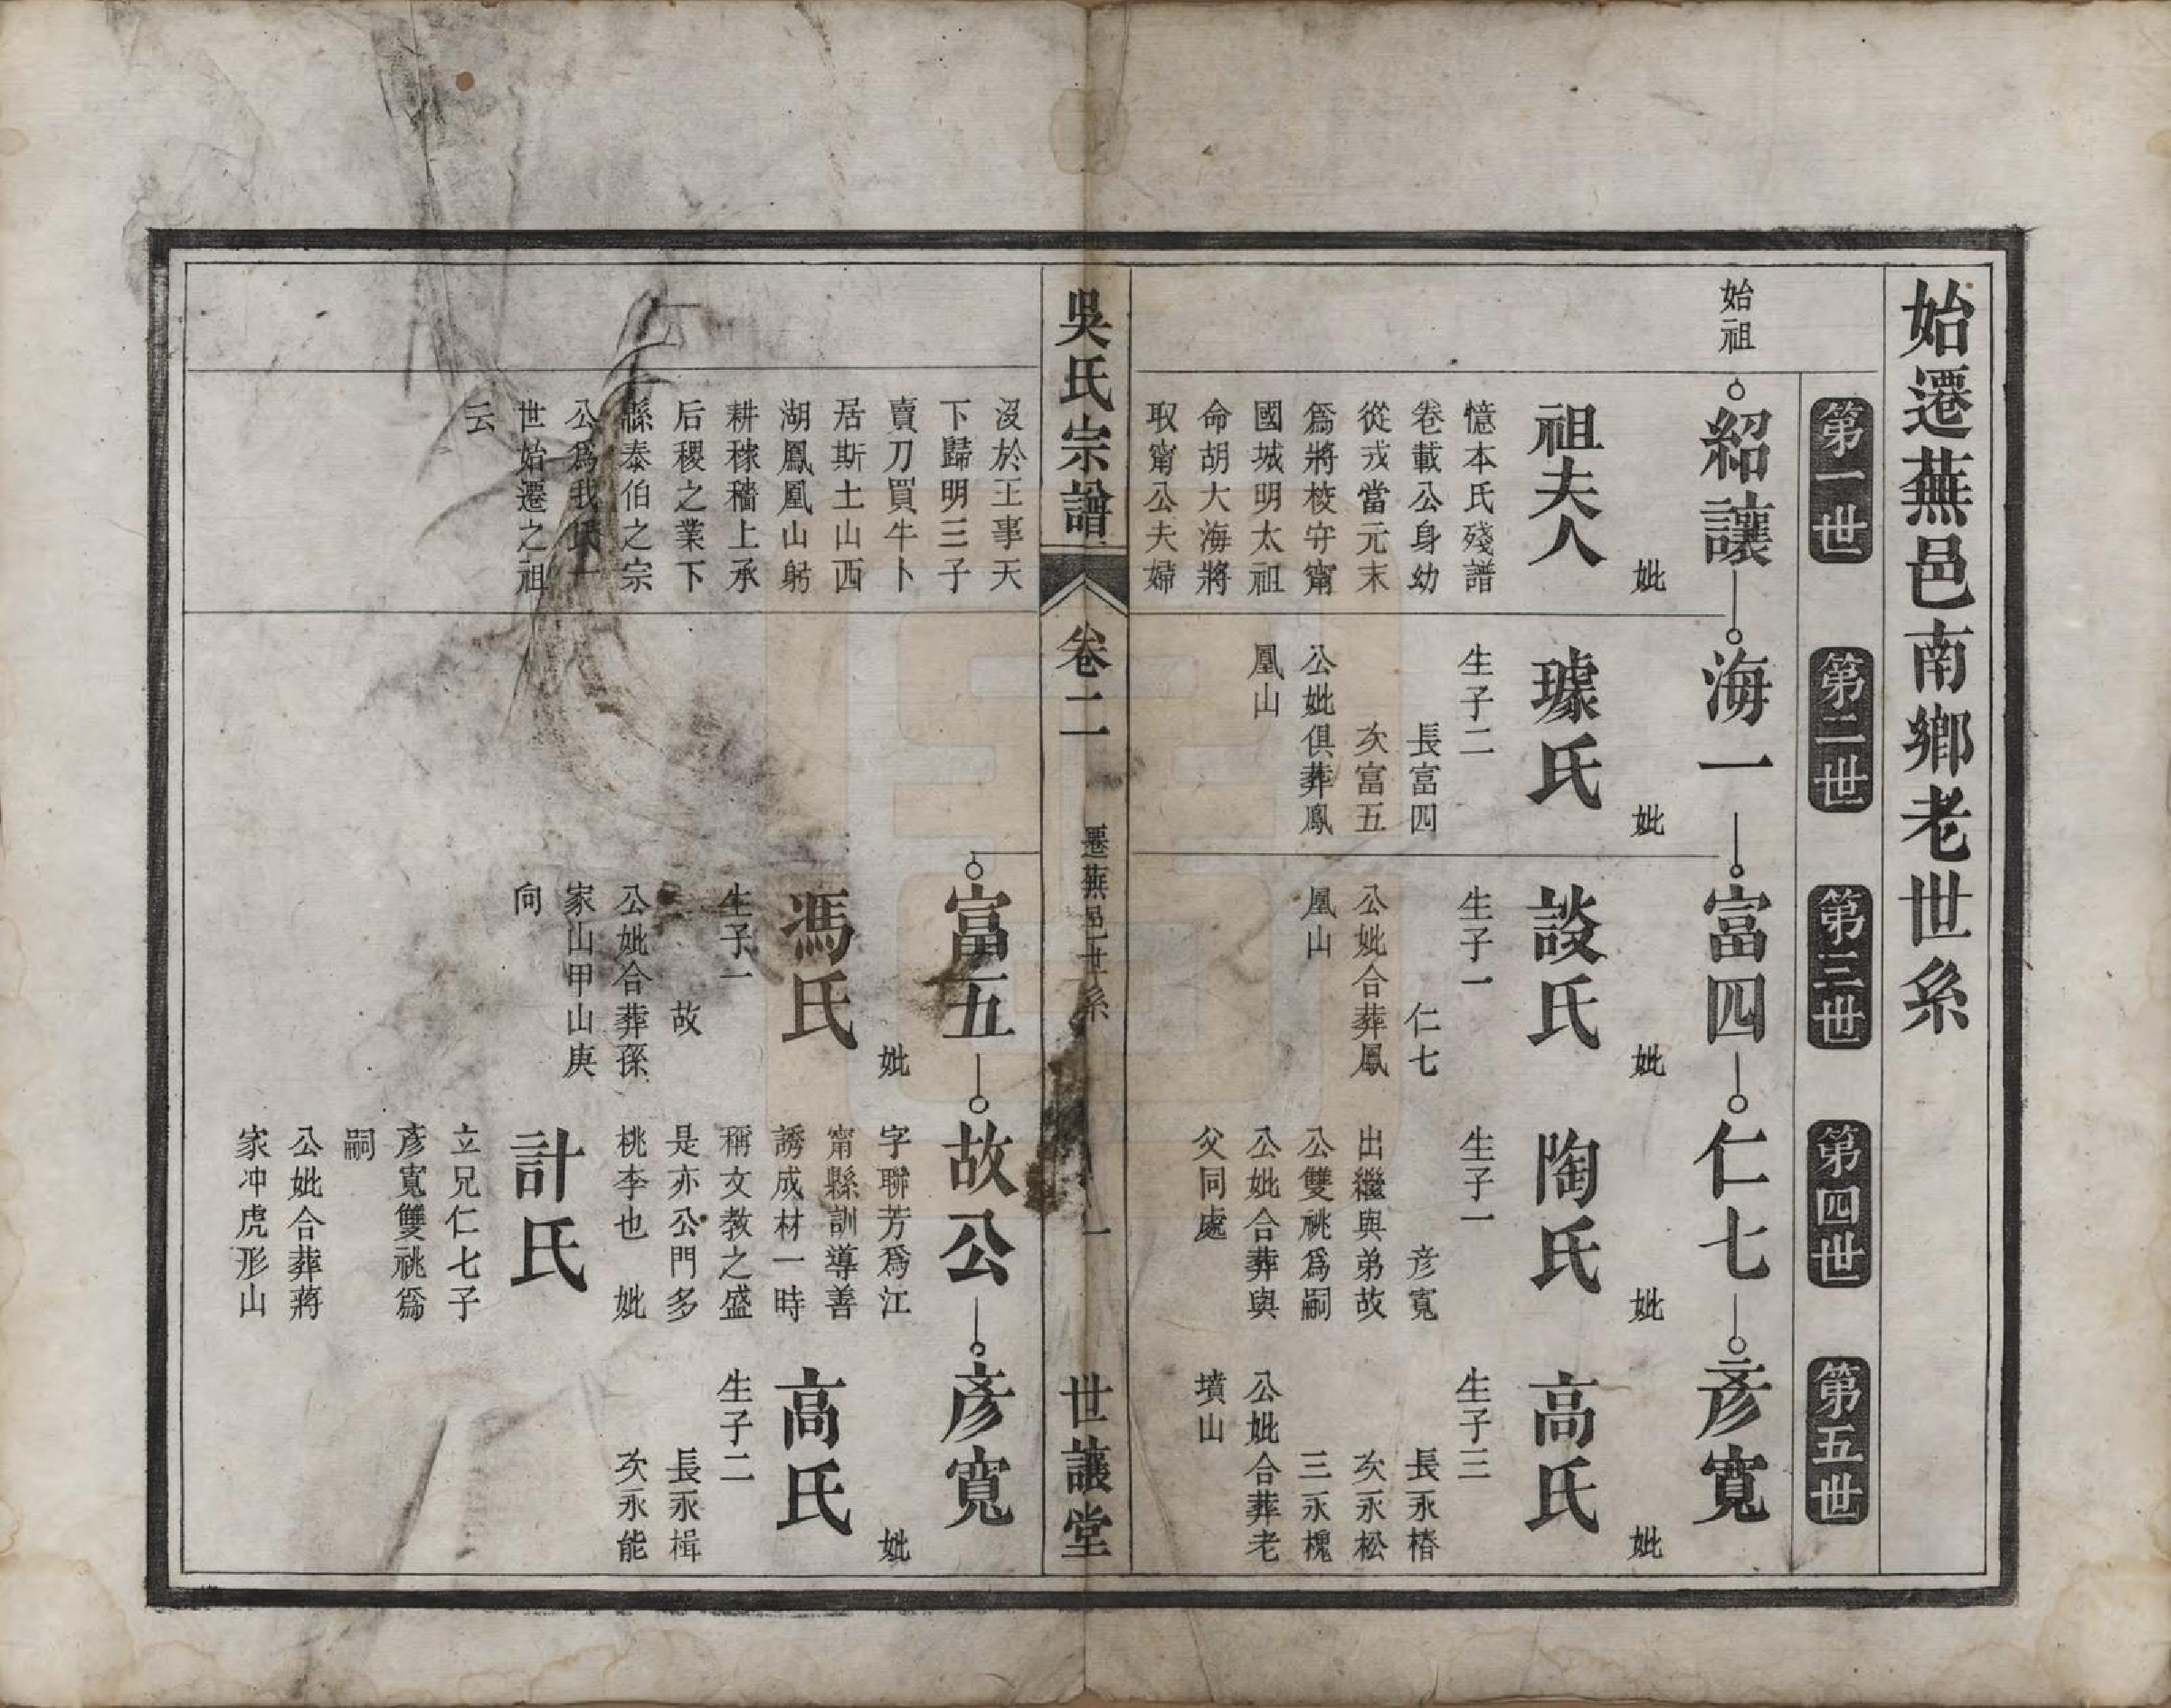 始遷蕪邑南鄉老世系
第一世
第二世
第三世
第四世
第五世
始祖
紹讓
妣
祖夫人
憶本氏殘譜
卷載公身幼
從戎當元末
爲將校守甯
國城明太祖
命胡大海將
取甯公夫婦
海一
妣
璩氏
生子二
長富四
次富五
公妣俱葬鳳
凰山
富四
妣
談氏
生子一
仁七
公妣合葬鳳
凰山
仁七
妣
陶氏
生子一
彦寬
出繼與弟故
公雙祧爲嗣
公妣合葬與
父同處
彦寬
妣
高氏
生子三
長永椿
次永松
三永槐
公妣合葬老
墳山
吳氏宗譜
卷二
遷蕪邑世系
一
世讓堂
沒於王事天
下歸明三子
賣刀買牛卜
居斯土山西
湖鳳凰山躬
耕稼穡上承
后稷之業下
繇泰伯之宗
公爲我氏一
世始遷之祖
云
富五
妣
馮氏
生子一
故
公妣合葬孫
家山甲山庚
向
故公
字聯芳爲江
甯縣訓導善
誘成材一時
稱文教之盛
是亦公門多
桃李也
妣
計氏
立兄仁七子
彦寬雙祧爲
嗣
公妣合葬蔣
家冲虎形山
彦寬
妣
高氏
生子二
長永楫
次永能